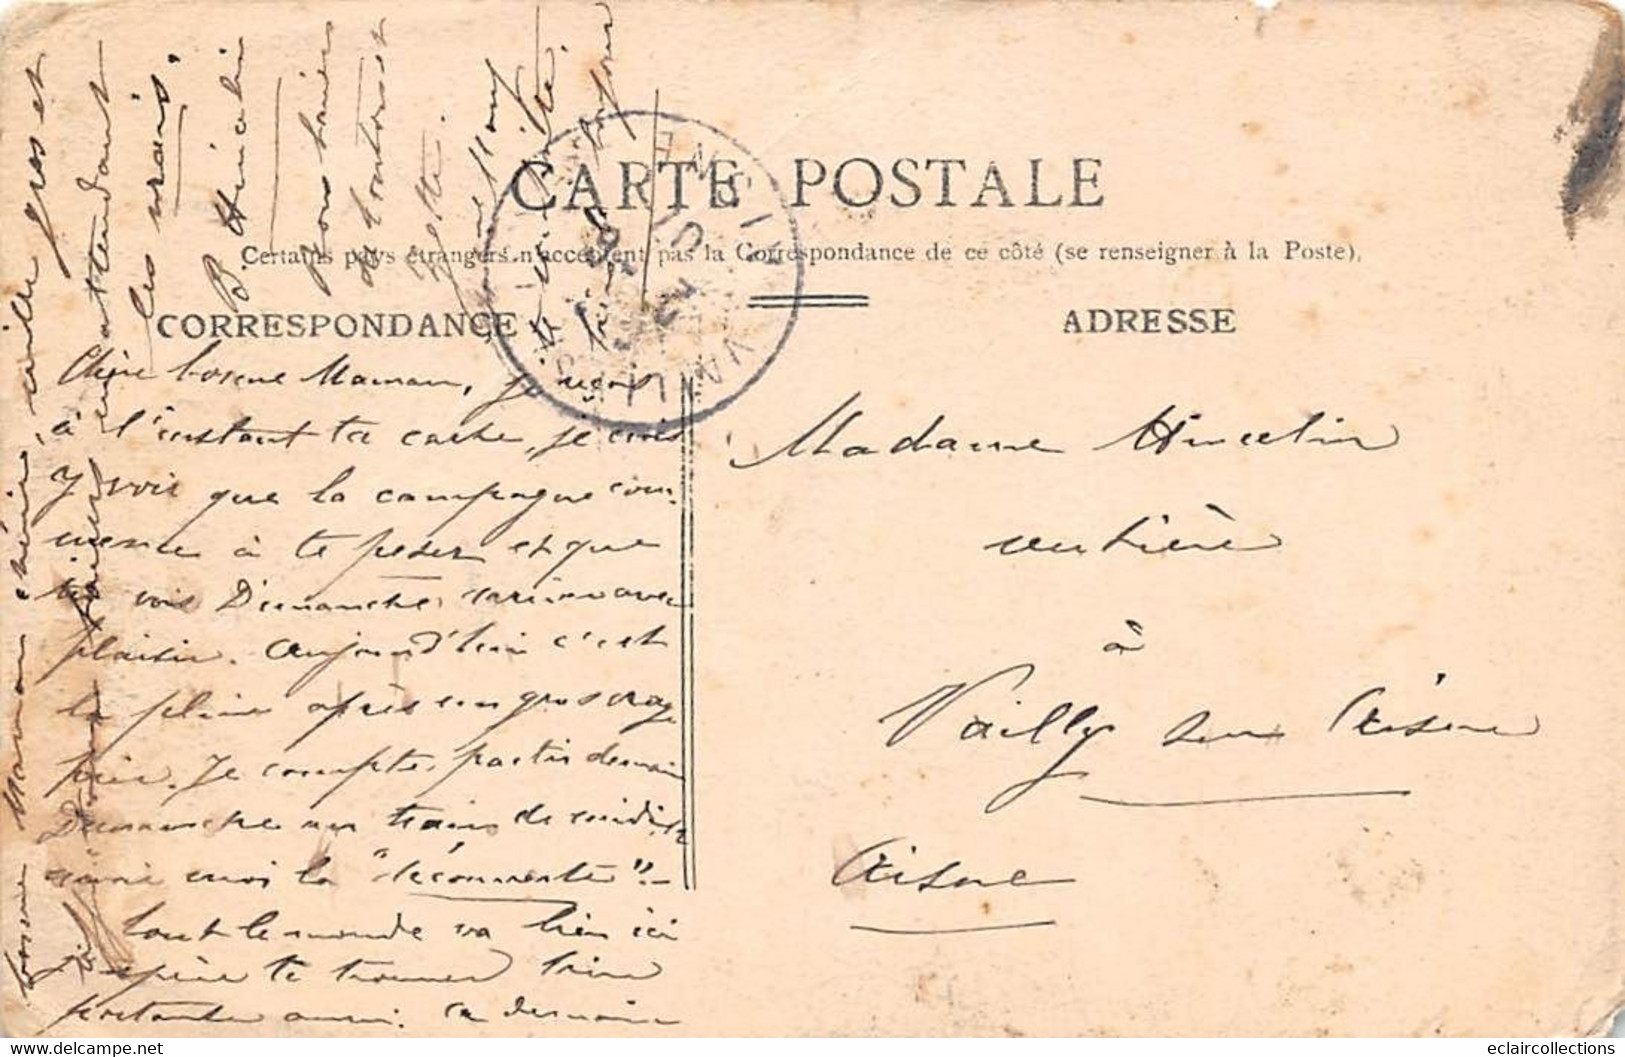 CARTE POSTALE
Certains pays étrangers n'acceptent pas la Correspondance de ce côté (se renseigner à la Poste).
CORRESPONDANCE
ADRESSE
Chère bonne Maman, je reçois
à l'instant ta carte, je crois
y voir que la campagne com-
mence à te peser et que
tu vois Dimanche arriver avec
plaisir. Aujourd'hui c'est
la pluie après un gros orage
hier. Je compte partir demain
Dimanche au train de midi,
moi la "découverte".-
tout le monde va bien ici
j'espère te trouver bien
portante aussi. a demain
bonne Maman chérie, mille gros et
en attendant
les vrais.
B. Hincelin
Bons baisers
de tous et
Madame Hincelin
rentière
à
Vailly sur Aisne
Aisne
VAILLY
AISNE
eclaircollections
www.delcampe.net